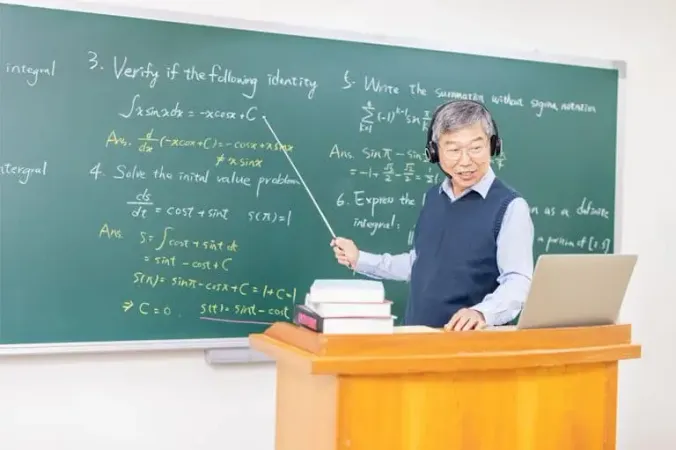 integral
intergral
3. Verify if the following identity
∫xsinxdx = -xcosx + C
Ans. d/dx (-xcosx+C) = -cosx+xsinx
≠ xsinx
4. Solve the inital value problem
ds/dt = cost + sint   s(π)=1
Ans. S = ∫cost + sint dt
= sint - cost + C
S(π) = sinπ - cosπ + C = 1 + C = 1
⇒ C = 0   S(t) = sint - cost
5. Write the summation without sigma notation
(-1)^k-1 sin π/k
Ans. Sinπ - sin
6. Express the as a definite
integral: a partion of